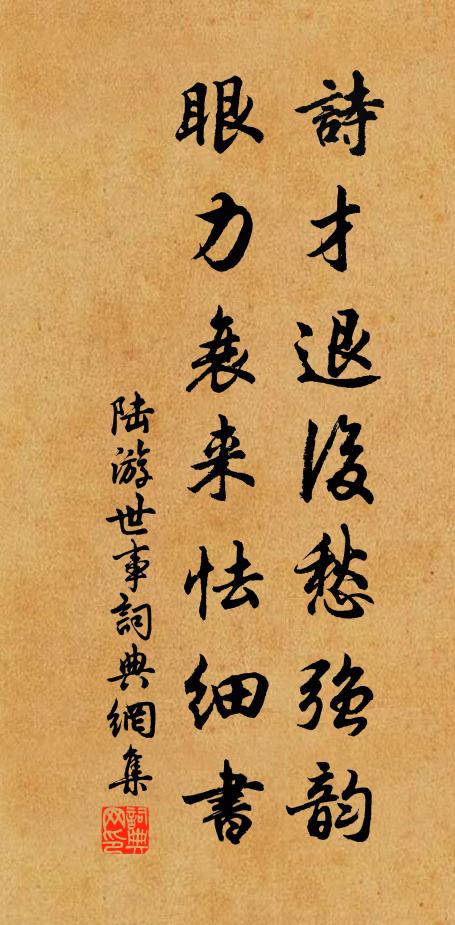 詩才退後愁強韵
眼力衰来怯细書
陆游世事詞典網集
詞典网印